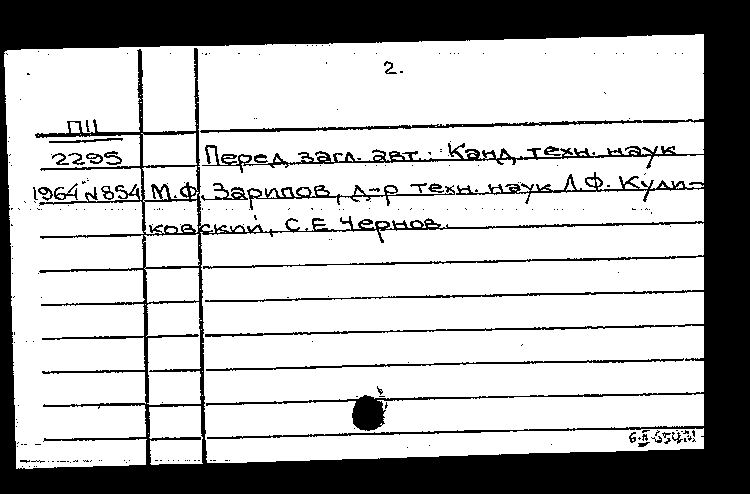 2.
П11
2295
Перед загл. авт.: Канд. техн. наук
1964 №854 М.Ф. Зарипов, д-р техн. наук Л.Ф. Кули-
ковский, С.Е. Чернов.